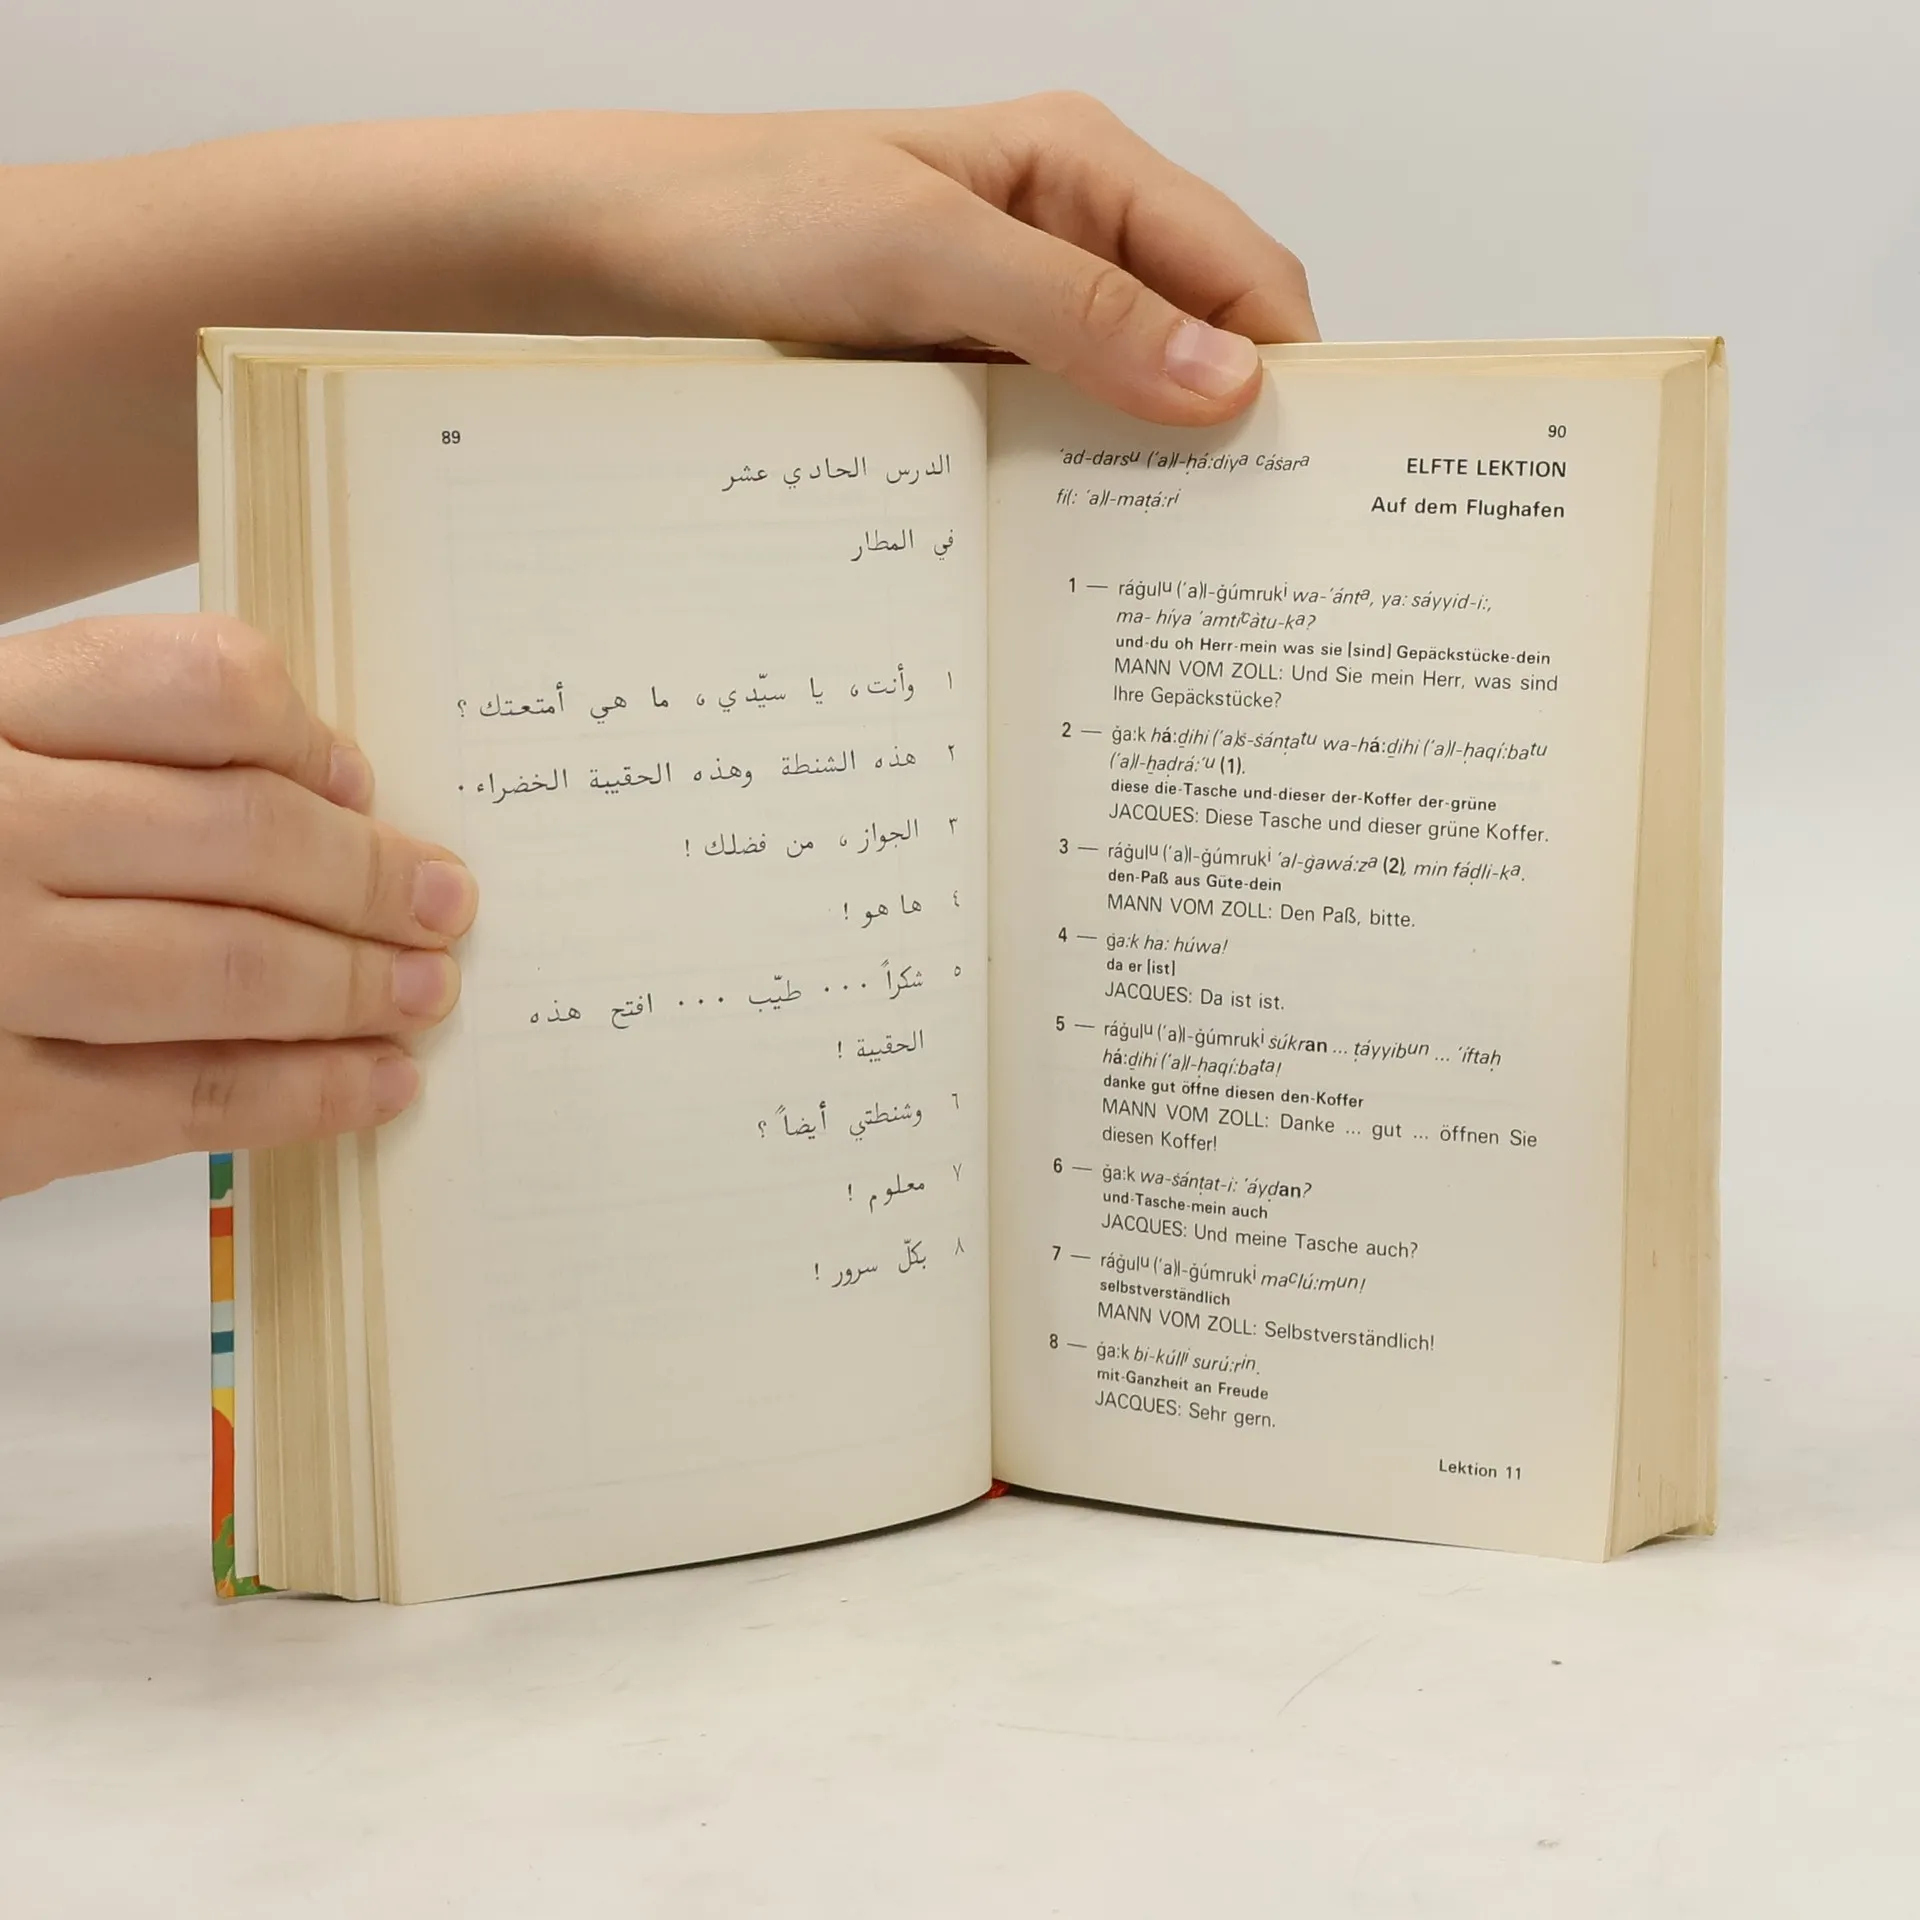 89
الدرس الحادي عشر
في المطار
١ وأنت، يا سيّدي، ما هي أمتعتك ؟
٢ هذه الشنطة وهذه الحقيبة الخضراء.
٣ الجواز، من فضلك !
٤ ها هو !
٥ شكراً ... طيّب ... افتح هذه
الحقيبة !
٦ وشنطتي أيضاً ؟
٧ معلوم !
٨ بكلّ سرور !
90
'ad-darsu ('a)l-ḥá:diya ᶜášara ELFTE LEKTION
fi(: 'a)l-maṭá:ri Auf dem Flughafen
1 — ráǧulu ('a)l-ǧúmruki wa-'ánta, ya: sáyyid-i:,
ma- híya 'amtiᶜàtu-ka?
und-du oh Herr-mein was sie [sind] Gepäckstücke-dein
MANN VOM ZOLL: Und Sie mein Herr, was sind
Ihre Gepäckstücke?
2 — ǧa:k há:ḏihi ('a)š-šánṭatu wa-há:ḏihi ('a)l-ḥaqí:batu
('a)l-ḫaḍrá:'u (1).
diese die-Tasche und-dieser der-Koffer der-grüne
JACQUES: Diese Tasche und dieser grüne Koffer.
3 — ráǧulu ('a)l-ǧúmruki 'al-ǧawá:za (2), min fáḍli-ka.
den-Paß aus Güte-dein
MANN VOM ZOLL: Den Paß, bitte.
4 — ǧa:k ha: húwa!
da er [ist]
JACQUES: Da ist ist.
5 — ráǧulu ('a)l-ǧúmruki šúkran ... ṭáyyibun ... 'íftaḥ
há:ḏihi ('a)l-ḥaqí:bata!
danke gut öffne diesen den-Koffer
MANN VOM ZOLL: Danke ... gut ... öffnen Sie
diesen Koffer!
6 — ǧa:k wa-šánṭat-i: 'áyḍan?
und-Tasche-mein auch
JACQUES: Und meine Tasche auch?
7 — ráǧulu ('a)l-ǧúmruki maᶜlú:mun!
selbstverständlich
MANN VOM ZOLL: Selbstverständlich!
8 — ǧa:k bi-kúlli surú:rin.
mit-Ganzheit an Freude
JACQUES: Sehr gern.
Lektion 11